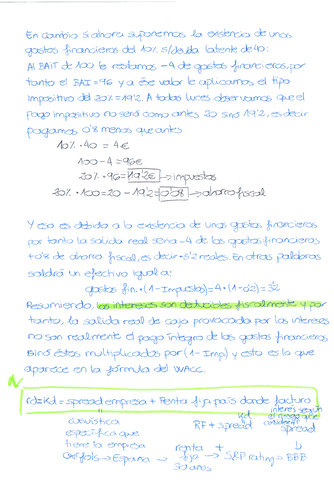 En cambio si ahora suponemos la existencia de unos
gastos financieros del 10% s/deuda latente de 40:
Al BAIT de 100 le restamos -4 de gastos financieros, por
tanto el BAI = 96 y a ése valor le aplicamos el tipo
impositivo del 20% = 19'2. A todas luces observamos que el
pago impositivo no será como antes 20 sino 19'2, es decir
pagamos 0'8 menos que antes
10% · 40 = 4€
100 - 4 = 96€
20% · 96 = 19'2€ → impuestos
20% · 100 = 20 - 19'2 = 0'08 → ahorro fiscal
Y eso es debido a la existencia de unos gastos financieros
por tanto la salida real sería -4 de los gastos financieros
+ 0'8 de ahorro fiscal, es decir -3'2 reales. En otras palabras
saldrá un efectivo igual a:
gastos fin. · (1 - Impuestos) = 4 · (1 - 0'2) = 3'2
Resumiendo, los intereses son deducibles fiscalmente y por
tanto, la salida real de caja provocada por los intereses
no son realmente el pago íntegro de los gastos financieros
sino éstos multiplicados por (1 - Imp) y esto es lo que
aparece en la fórmula del WACC.
rd = Kd = spread empresa + Renta fija país donde factura
casuística
específica que
tiene la empresa
Grifols → España
Kd
RF + spread
interés según
el riesgo que
spread
renta
fija
30 años
+
→ S&P rating → BBB